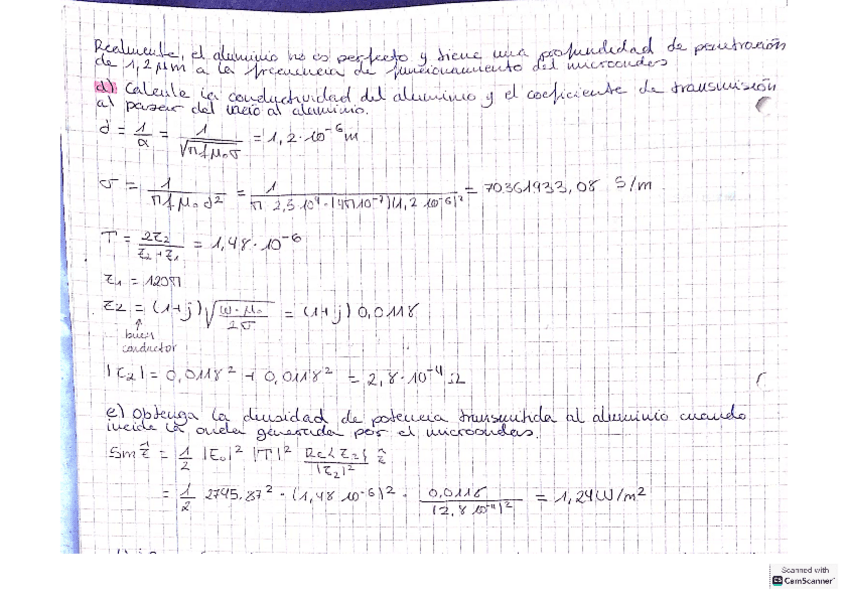 Realmente, el aluminio no es perfecto y tiene una profundidad de penetración
de 1,2 μm a la frecuencia de funcionamiento del microondas
d) Calcule la conductividad del aluminio y el coeficiente de transmisión
al pasar del vacío al aluminio.
d = 1/α = 1/√(π f μ₀ σ) = 1,2·10⁻⁶ m
σ = 1/(π f μ₀ d²) = 1/(π 2,5 10⁹·(4π10⁻⁷)(1,2 10⁻⁶)²) = 70361933,08 S/m
T = 2Z₂/(Z₂+Z₁) = 1,48·10⁻⁶
Z₁ = 120π
Z₂ = (1+j)√(ω·μ₀/2σ) = (1+j) 0,0118
↑
buen
conductor
|Z₂| = 0,0118² + 0,0118² = 2,8·10⁻⁴ Ω
e) Obtenga la densidad de potencia transmitida al aluminio cuando
incide la onda generada por el microondas.
Sm ẑ = 1/2 |E₀|² |T|² Re{Z₂}/|Z₂|² ẑ
= 1/2 2745,87² · (1,48 10⁻⁶)² · 0,0118/(2,8 10⁻⁴)² = 1,24 W/m²
Scanned with
CS CamScanner